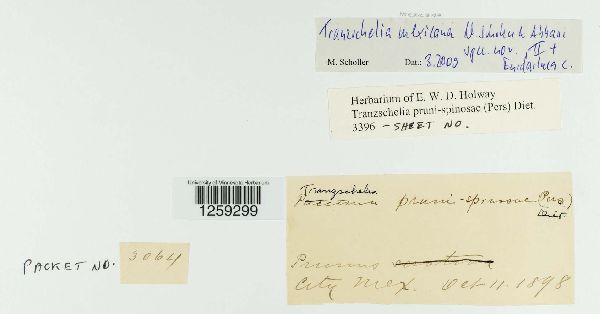 Tranzschelia mexicana M. Scholler & Abbasi
spec. nov., II +
M. Scholler Dat.: 3.2009
Herbarium of E. W. D. Holway
Tranzschelia pruni-spinosae (Pers) Diet.
3396 - SHEET NO.
University of Minnesota Herbarium
1259299
Tranzschelia
Puccinia pruni-spinosae (Pers)
Diet
Prunus
City Mex. Oct 11. 1898
PACKET NO. 3064